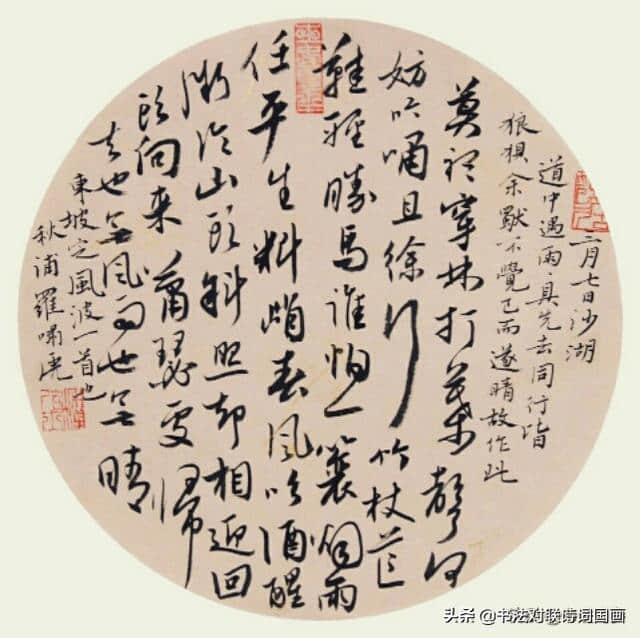 三月七日沙湖
道中遇雨具先去同行皆
狼狽余獨不覺已而遂晴故作此
莫聽穿林打葉聲何
妨吟嘯且徐行竹杖芒
鞋輕勝馬誰怕一蓑烟雨
任平生料峭春風吹酒醒
微冷山頭斜照却相迎回
頭向來蕭瑟處歸
去也無風雨也無晴
東坡定風波一首也
秋浦羅嘯
头条 @书法对联诗词国画